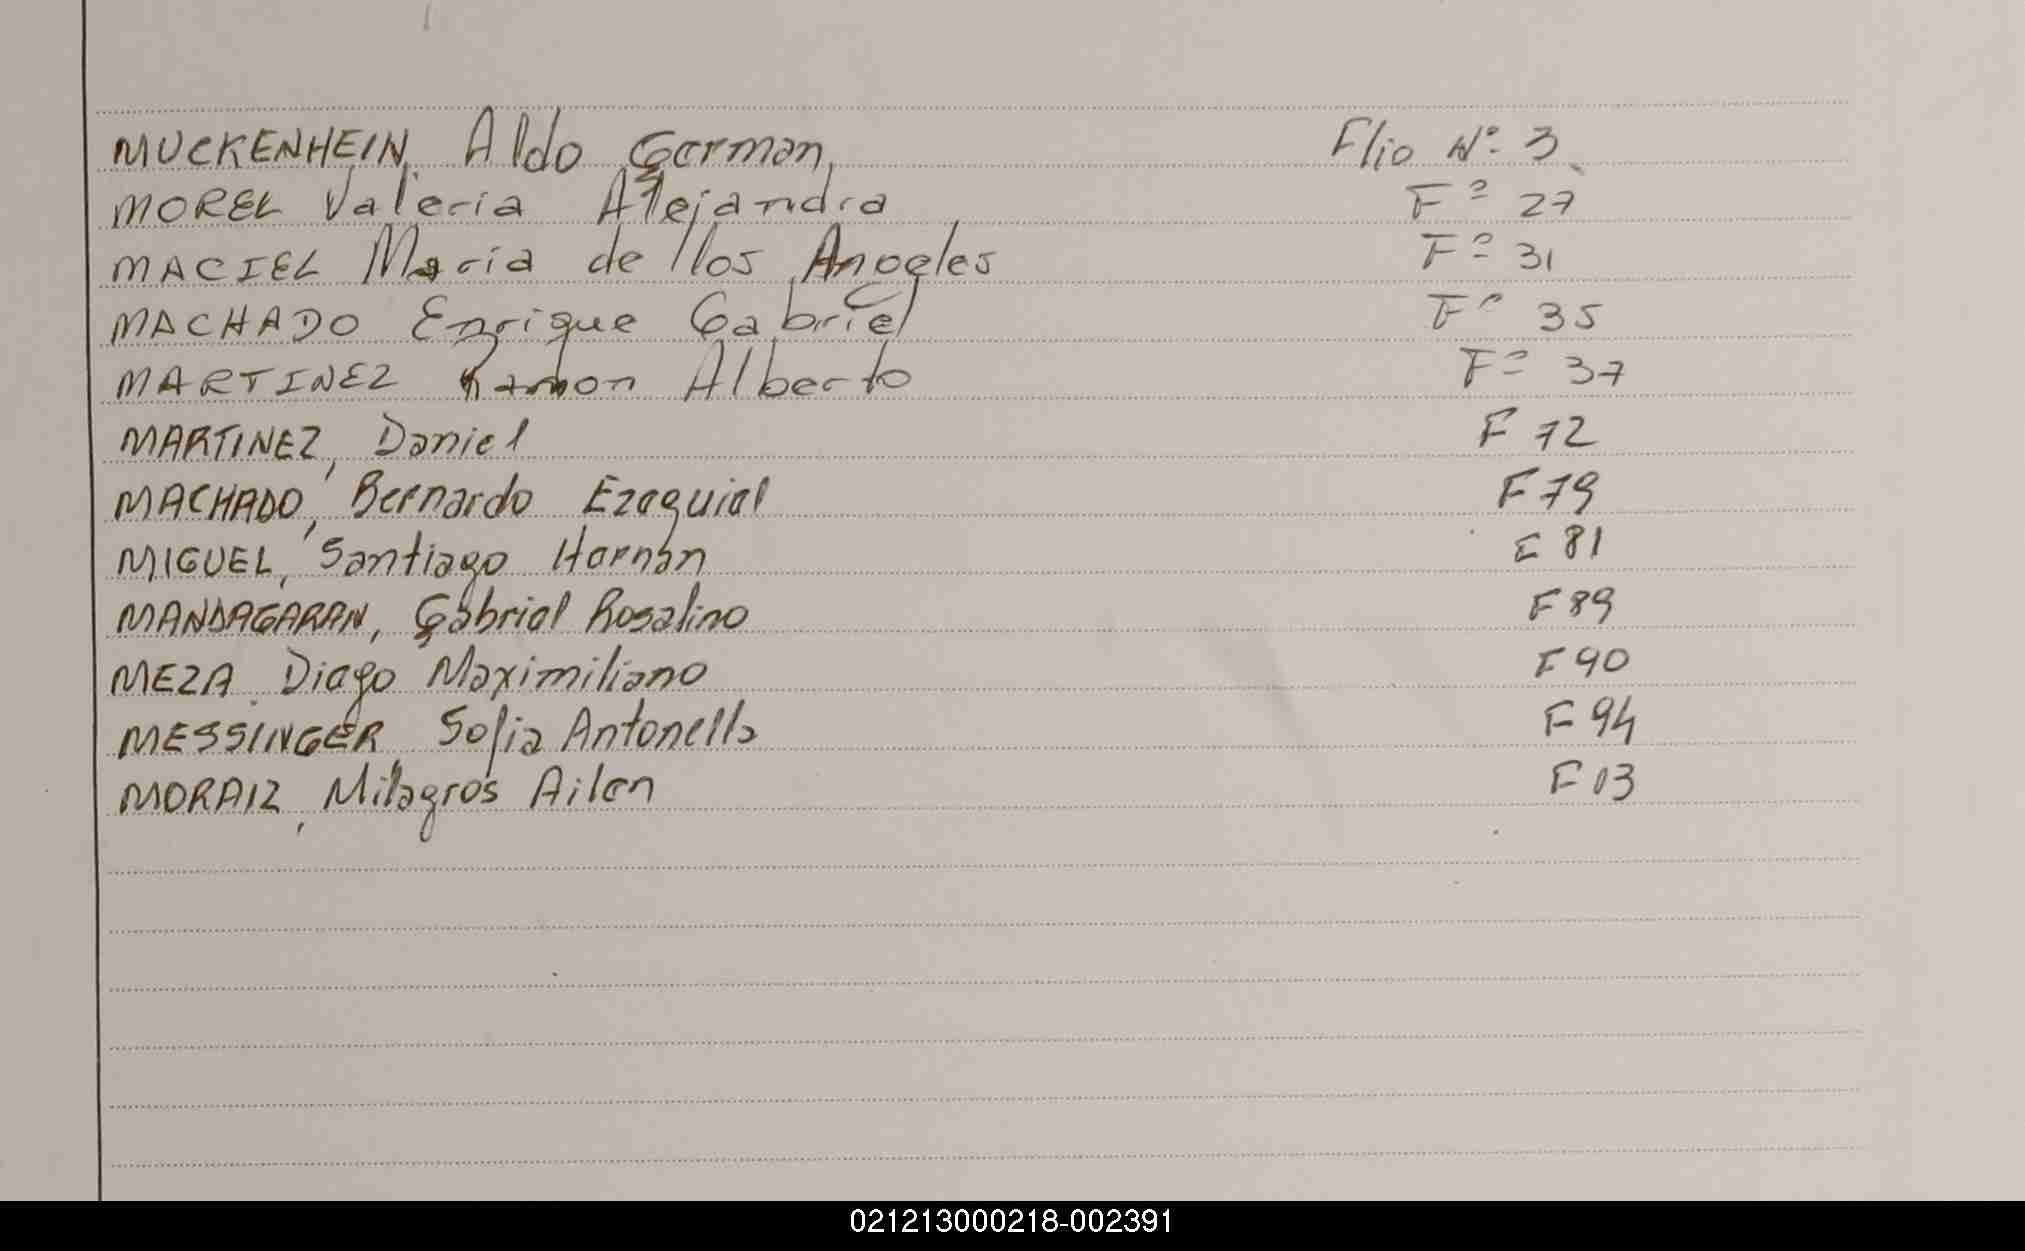 MUCKENHEIN, Aldo German, Flio Nº 3
MOREL Valeria Alejandra Fº 27
MACIEL Maria de llos Angeles Fº 31
MACHADO Enrique Gabriel Fº 35
MARTINEZ Ramon Alberto Fº 37
MARTINEZ, Daniel F 72
MACHADO, Bernardo Ezequiel F 79
MIGUEL, Santiago Hernán F 81
MANDAGARAN, Gabriel Rosalino F 89
MEZA, Diego Maximiliano F 90
MESSINGER Sofia Antonella F 94
MORAIZ, Milagros Ailen F 03
021213000218-002391